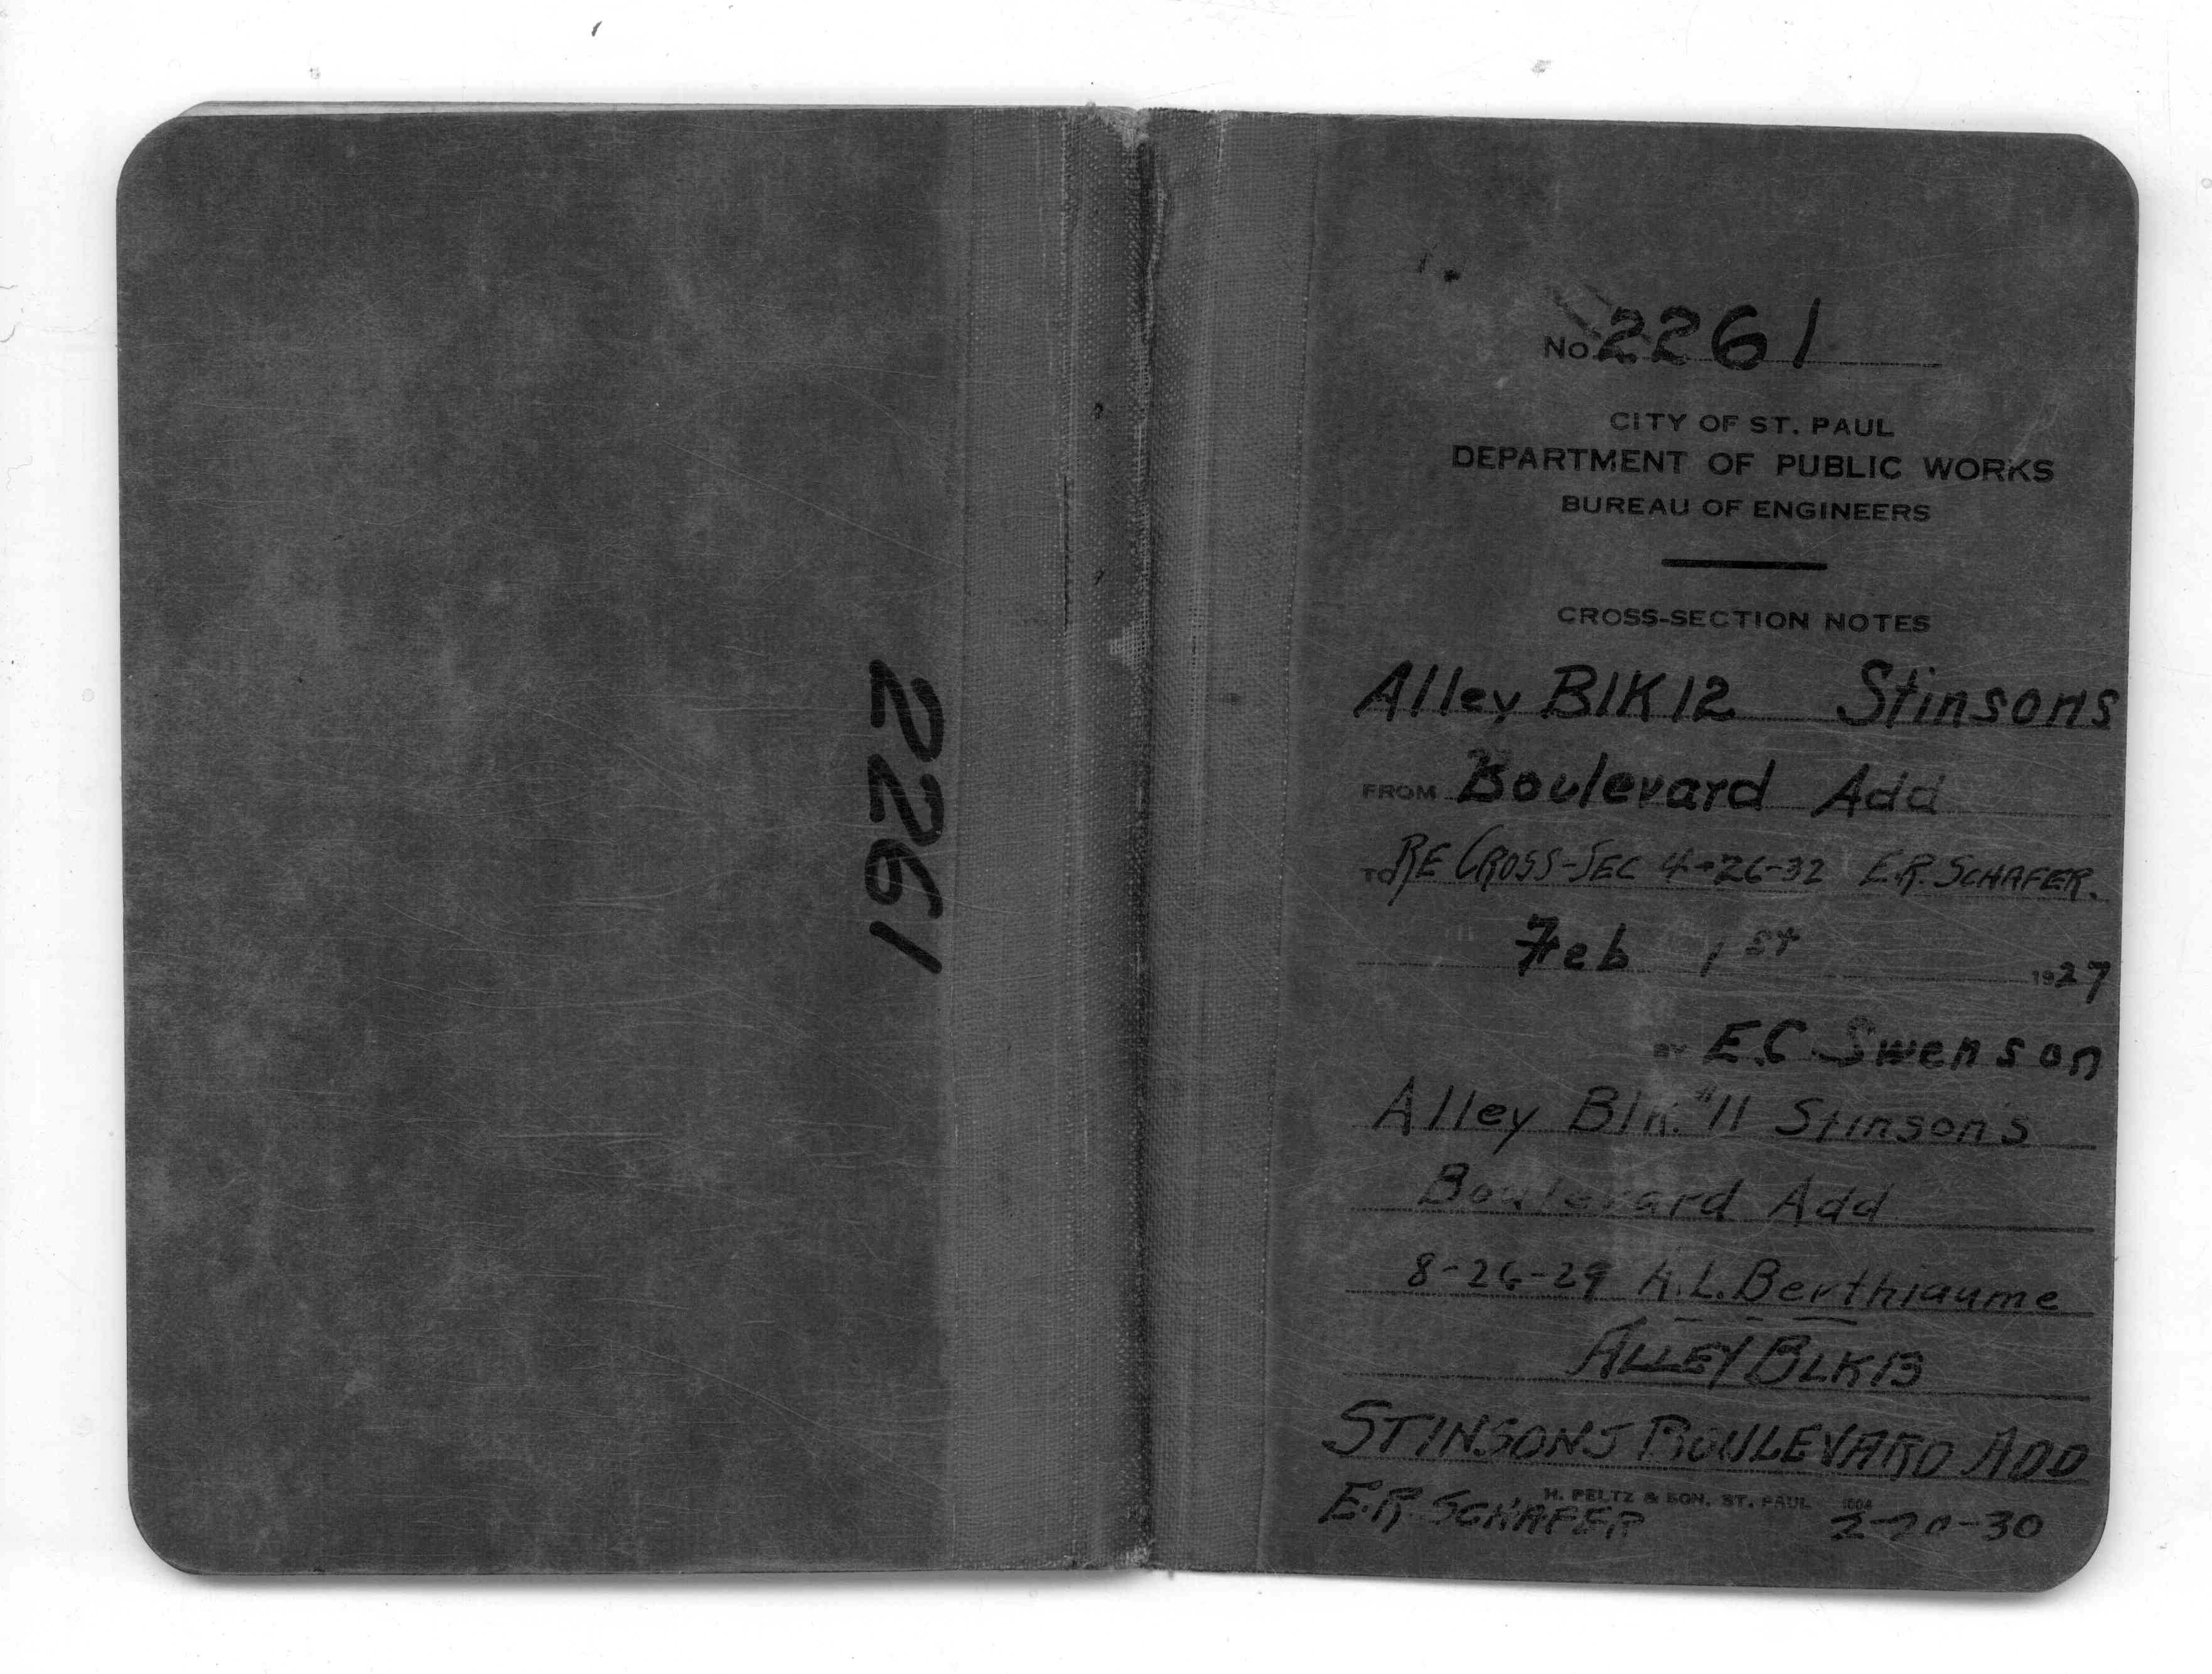 2261
No. 2261
CITY OF ST. PAUL
DEPARTMENT OF PUBLIC WORKS
BUREAU OF ENGINEERS
CROSS-SECTION NOTES
Alley Blk 12 Stinsons
FROM Boulevard Add
TO RE CROSS-SEC 4-26-32 E.R. SCHAFER.
Feb 1st 1927
BY E.C. Swenson
Alley Blk. #11 Stinson's
Boulevard Add
8-26-29 A.L. Berthiaume
ALLEY BLK 13
STINSONS BOULEVARD ADD
H. PELTZ & SON, ST. PAUL
E.R. SCHAFER 2-20-30